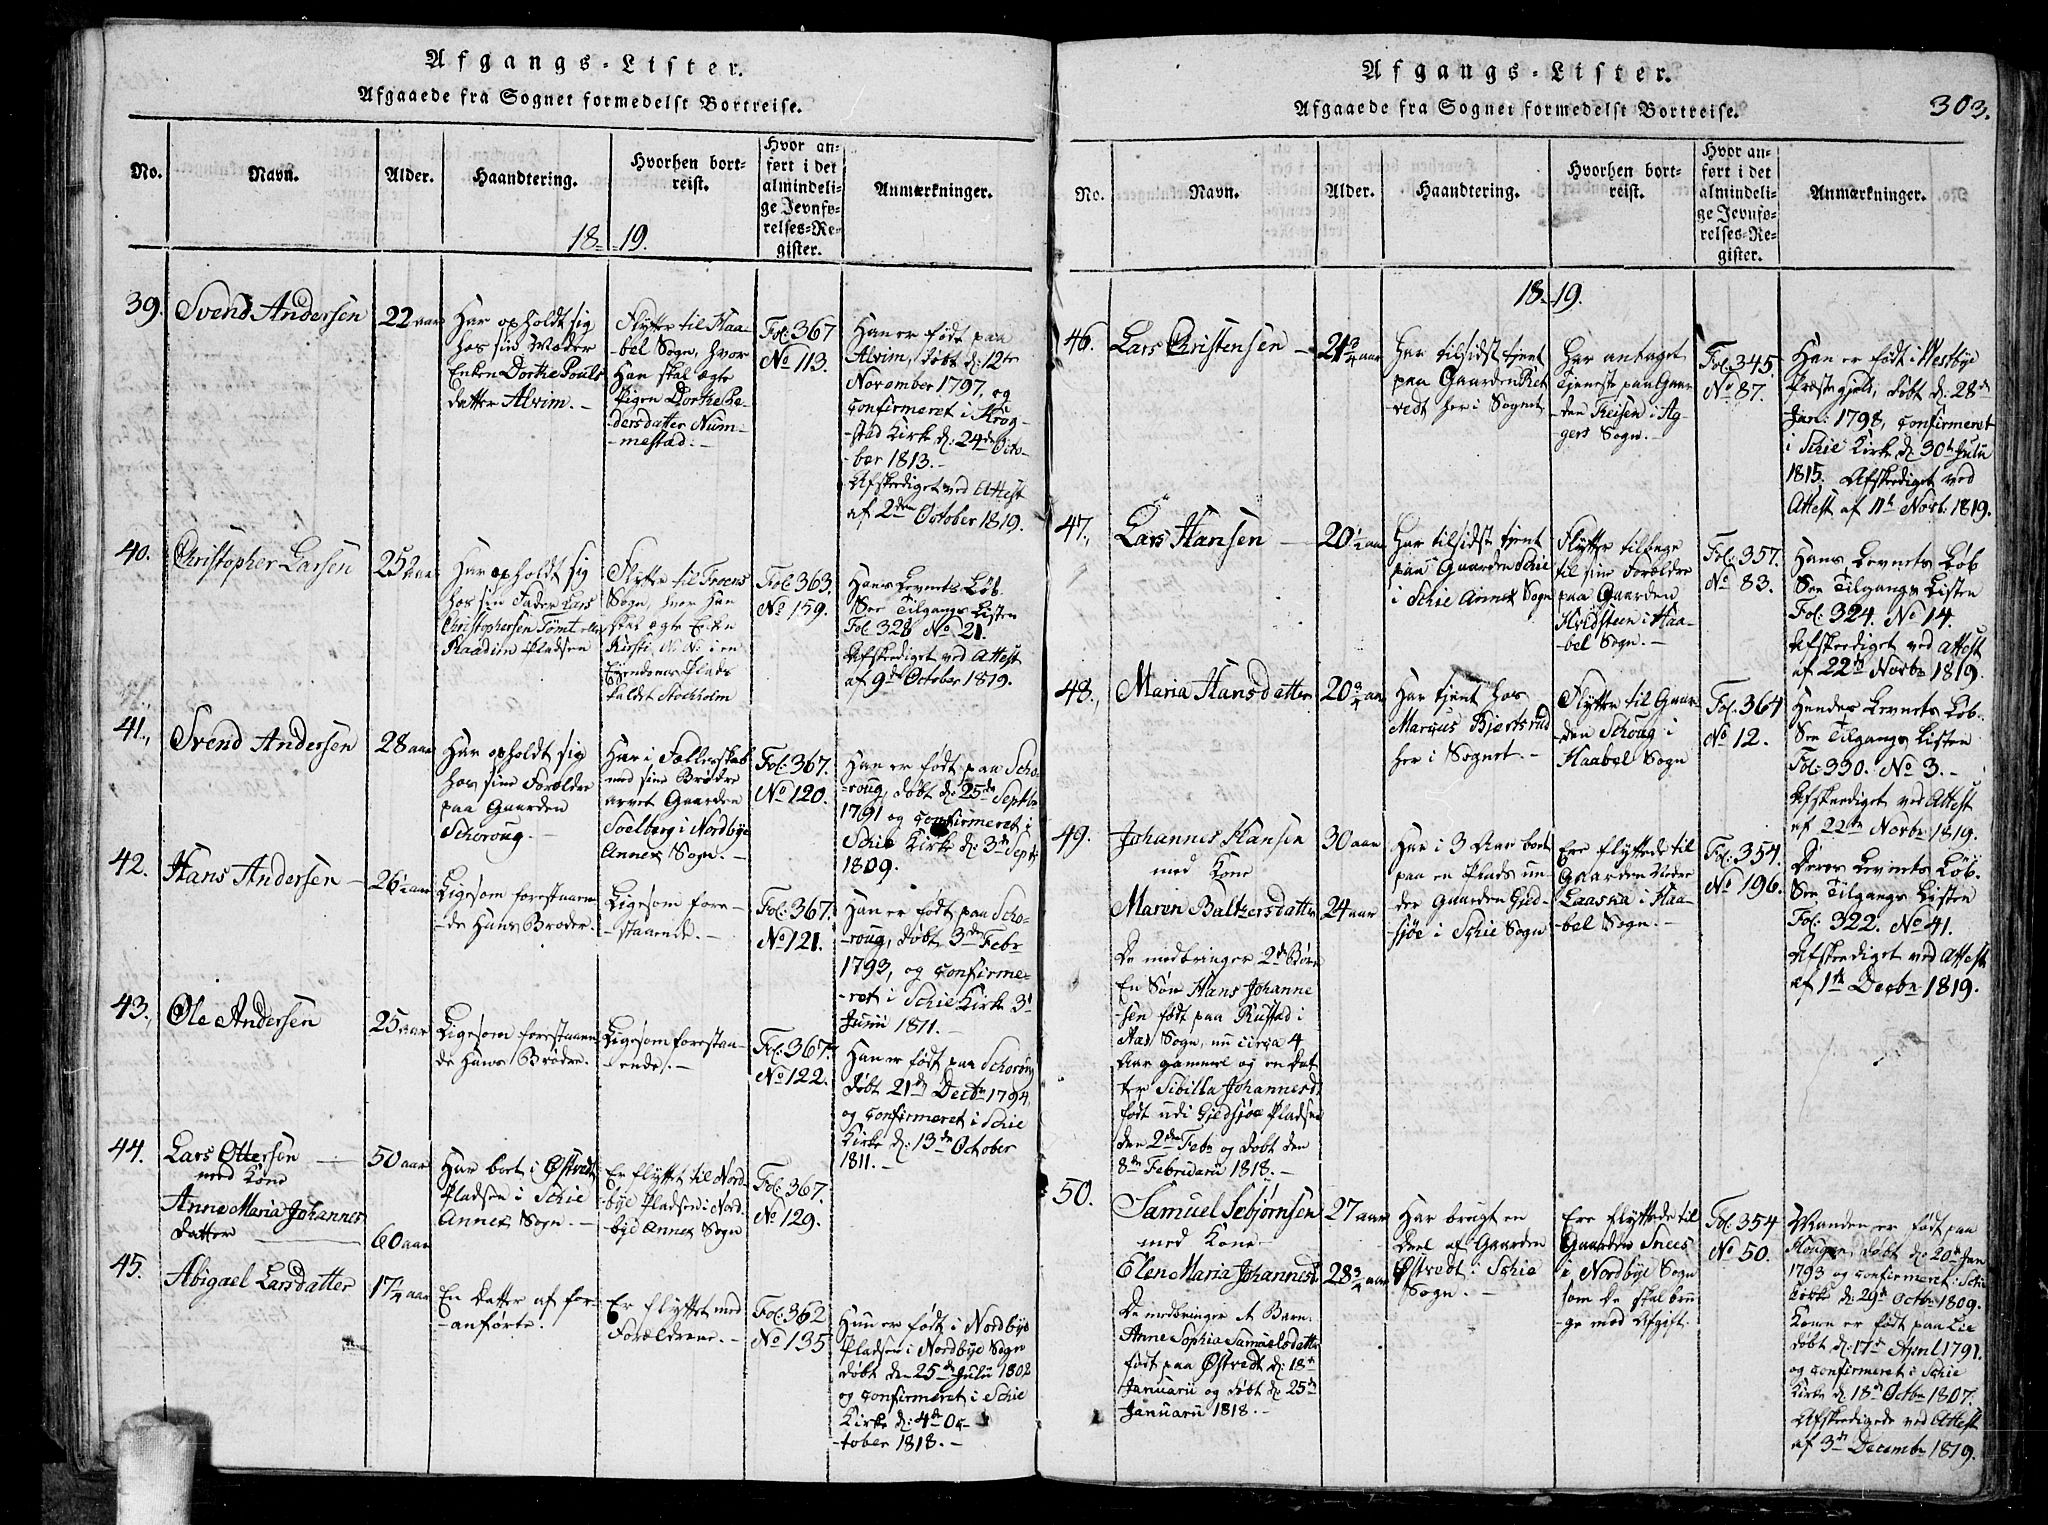 Afgangs-Lister.
Afgaaede fra Sognet formedelst Bortreise.
No.
Navn.
Alder.
Haandtering.
Hvorhen bort-
reist.
Hvor an-
ført i det
almindeli-
ge Jevnfø-
relses-Re-
gister.
Anmærkninger.
18-19.
39.
Svend Andersen
22 aar
Har opholdt sig
hos sin Moder
Enken Dorthe Pouls
datter Alvim.-
Flytter til Haa-
bel Sogn, hvor
Han skal ægte
Pigen Dorthe Pe-
dersdatter Num-
mestad.-
Fol: 367
No 113.
Han er født paa
Alvim, døbt d: 12te
November 1797, og
confirmeret i Krog-
stad Kirke d: 24de Octo-
ber 1813.-
Afskediget ved Attest
af 2den October 1819.
40.
Christopher Larsen
25 1/2 aar
Har opholdt sig
hos sin Fader Lars
Christophersen Tømt eller
Raadim Pladsen
Flytter til Froens
Sogn, hvor Han
skal ægte Enken
Kirsti N: N: i en
Eiendoms Plads
kaldt Stockholm
Fol: 363.
No 159.
Hans Levnets Løb.
See Tilgangs Listen
Fol: 328 No 21.
Afskediget ved Attest
af 9de October 1819.
41.,
Svend Andersen
28 aar
Har opholdt sig
hos sine Forældre
paa Gaarden
Schoroug.-
Har i Fællesskab
med sine Brødre
arvet Gaarden
Soelberg i Nordbye
Annex Sogn.-
Fol: 367.
No 120.
Han er født paa Scho-
roug, døbt d: 25de Septbr
1791 og confirmeret i
Schie Kirke d: 3de Septr
1809.
42.
Hans Andersen -
26 1/2 aar
Ligesom forestaaen-
de Hans Broder.
Ligesom fore-
staaende.-
Fol: 367.
No 121.
Han er født paa Scho-
roug, døbt 3de Febr
1793, og confirme-
ret i Schie Kirke 3d
Junii 1811.-
43.,
Ole Andersen
25 aar
Ligesom forestaaen-
de Hans Brødre.
Ligesom forestaa-
ende.-
Fol: 367.
No 122.
Han er født paa Schoroug
døbt 21de Decbr 1794,
og confirmeret i Schie
Kirke d: 13de October
1811.-
44.
Lars Ottersen -
med Kone
Anne Maria Johannes
datter
50 aar
60 aar
Har boet i Østvedt
Pladsen i Schie
Annex Sogn.-
Er flyttet til Nord-
bye Pladsen i Nord-
bye Annex Sogn
Fol: 367.
No 129.
45.
Abigael Larsdatter
17 1/4 aar
En datter af for-
anførte.
Er flyttet med
Forældrene.-
Fol: 362
No 135
Hun er født i Nordbye
Pladsen i Nordbye Sogn
døbt den 25de Julii 1802
og confirmeret i Schie
Kirke d: 4de Oc-
tober 1818.-
Afgangs-Lister.
Afgaaede fra Sognet formedelst Bortreise.
303.
No.
Navn.
Alder.
Haandtering.
Hvorhen bort-
reist.
Hvor an-
ført i det
almindeli-
ge Jevnfø-
relses-Re-
gister.
Anmærkninger.
18-19.
46.
Lars Christensen -
21 3/4 aar
Har tilsidst tjent
paa Gaarden Ret
vedt her i Sognet
Har antaget
Tjeneste paa Gaar
den Treisen i Ag-
gers Sogn.-
Fol: 345.
No 87.
Han er født i Westbye
Præstegjeld, døbt d: 28de
Jan: 1798, confirmeret
i Schie Kirke d: 30te Julii
1815. Afskediget ved
Attest af 11te Novb: 1819.
47.,
Lars Hansen -
20 1/4 aar
Har tilsidst tjent
paa Gaarden Schie
i Schie Annex Sogn
Flytter tilbage
til sine Forældre
paa Gaarden
Hvidsteen i Haa-
bel Sogn.-
Fol: 357.
No 83.
Hans Levnets Løb
See Tilgangs Listen
Fol: 324. No 14.
Afskediget ved Attest
af 22de Novbr 1819.
48.,
Maria Hansdatter
20 3/4 aar
Har tjent hos
Marcus Bjertsrud
her i Sognet.-
Flytter til Gaar-
den Schoug i
Haabel Sogn
Fol: 364
No 12.
Hendes Levnets Løb.
See Tilgangs Listen
Fol: 330. No 3.-
Afskediget ved Attest
af 22de Novbr 1819.
49.
Johannes Hansen
med Kone
Maren Baltzersdatter
De medbringer 2de Børn
En Søn Hans Johanne
sen født paa Rustad i
Aas Sogn, nu circa 4
Aar gammel og en dat
ter Sibilla Johannesd:
født udi Gjedsjøe Pladsen
den 2den Febr og døbt den
8de Februarii 1818.-
30 aar
24 aar
Har i 3 Aar boet
paa en Plads un-
der Gaarden Gjed-
sjøe i Schie Sogn
Ere flyttede til
Gaarden Nedre
Laaska i Haa-
bel Sogn.-
Fol: 354.
No 196.
Deres Levnets Løb.
See Tilgangs Listen
Fol: 322. No 41.
Afskediget ved Attest
af 1te Decbr 1819.
50.
Samuel Sebjørnsen
med Kone
Elen Maria Johannesd:
De medbringer et Barn.
Anne Sophia Samuelsdatter
født paa Østvedt d: 18de
Januarii og døbt d: 25de
Januarii 1818.-
27 aar
28 3/4 aar
Har brugt en
Deel af Gaarden
Østvedt i Schie
Sogn.-
Ere flyttede til
Gaarden Snees
i Nordbye Sogn
som De skal bru-
ge med Afgift.
Fol: 354
No 50.
Manden er født paa
Hougen, døbt d: 20de Jan
1793 og confirmeret i Schie
Kirke d: 29de Octbr 1809.
Konen er født paa Lie
døbt d: 17de April 1791.
og confirmeret i Schie
Kirke d: 18de Octbr 1807.
Afskedigede ved Attest
af 3de Decembr 1819.